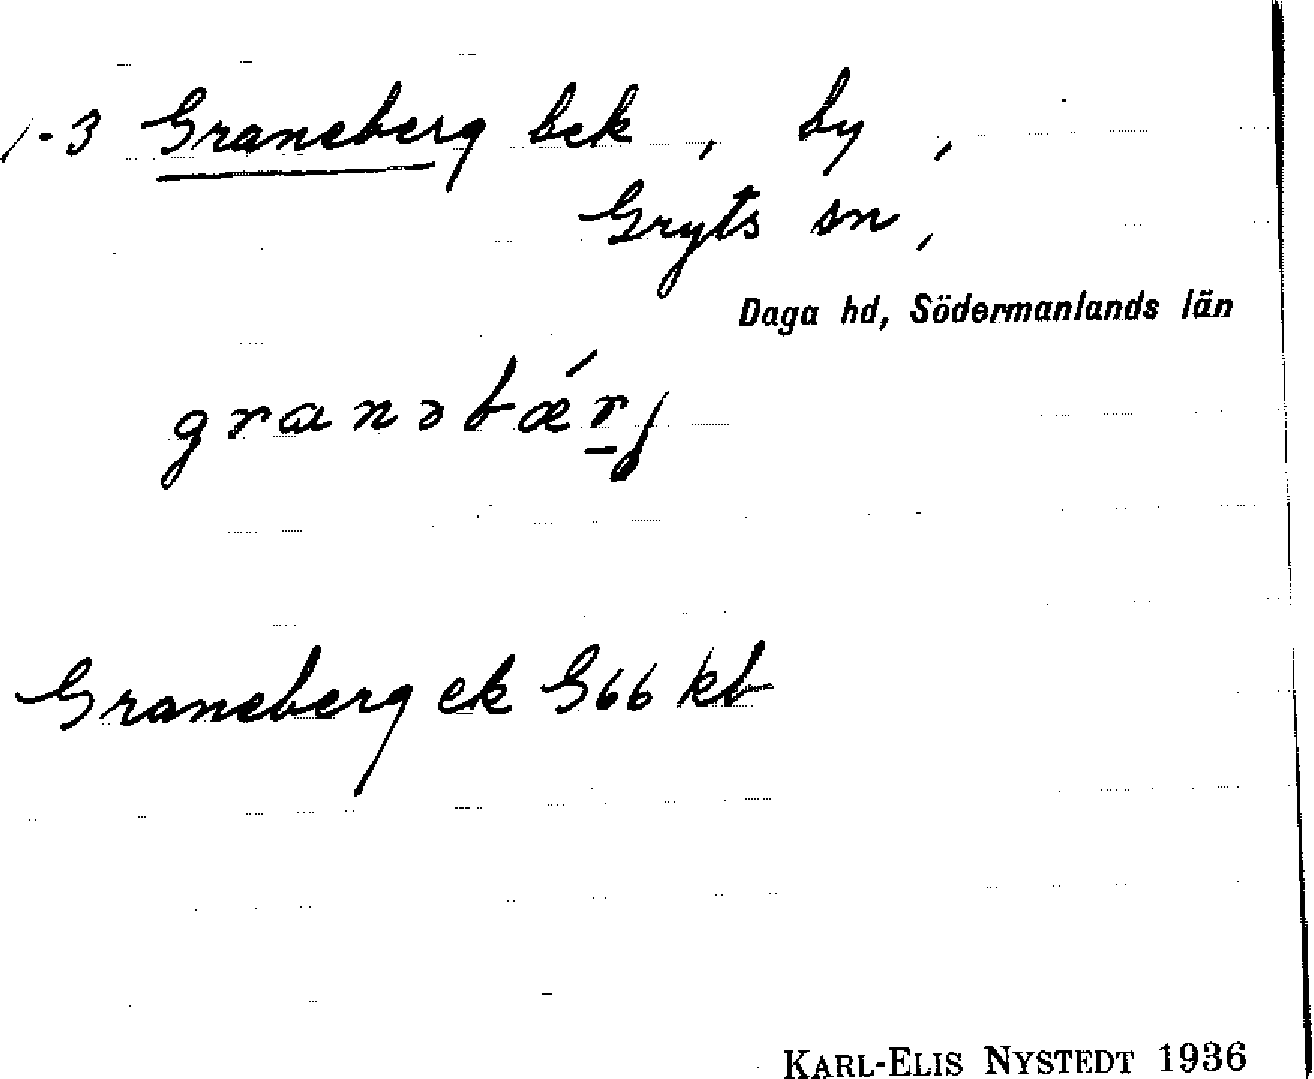 1-3 Graneberg bek, by,
Gryts sn,
Daga hd, Södermanlands län
Graneberg ek G66 kb
KARL-ELIS NYSTEDT 1936